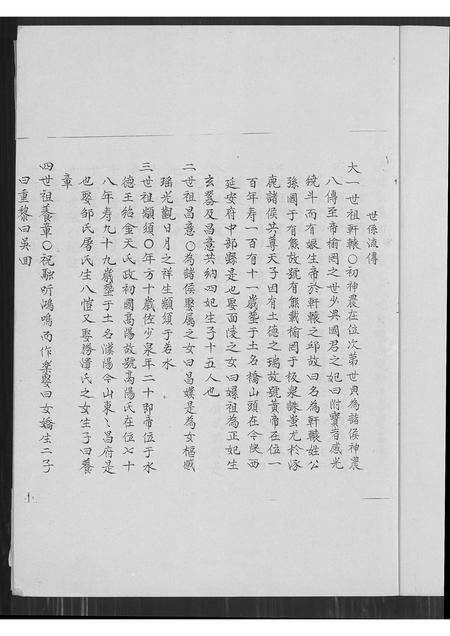 世係流傳
大一世祖軒轅○初神農在位次第世衰為諸侯神農
八傳至帝榆罔之世少典國君之妃曰附寶者感光
繞斗而有娠生帝於軒轅之邱故曰名為軒轅姓公
孫國于有熊故號有熊戴榆罔于板泉誅蚩尤於涿
鹿諸侯共尊天子因有土德之瑞故號黃帝在位一
百年寿一百有十一歲塟于土名橋山頭在令陝西
延安府中部縣是也娶西陵之女曰嫘祖為正妃生
玄囂及昌意共納四妃生子十五人也
二世祖昌意○為諸侯娶蜀之女曰昌嫫是為女樞感
瑤光觀日月之祥生顓頊于若水
三世祖顓頊○年方十歲佐少泉年二十即帝位于水
德王紹金天氏政初國高陽故號高陽氏在位七十
八年寿九十九歲塟于土名濮陽今山東〻昌府是
也娶邹氏屠氏生八愷又娶勝濆氏之女生子曰養
章
四世祖養章○祝融听鴻鳴而作樂娶曰女嬌生二子
曰重黎曰吳回